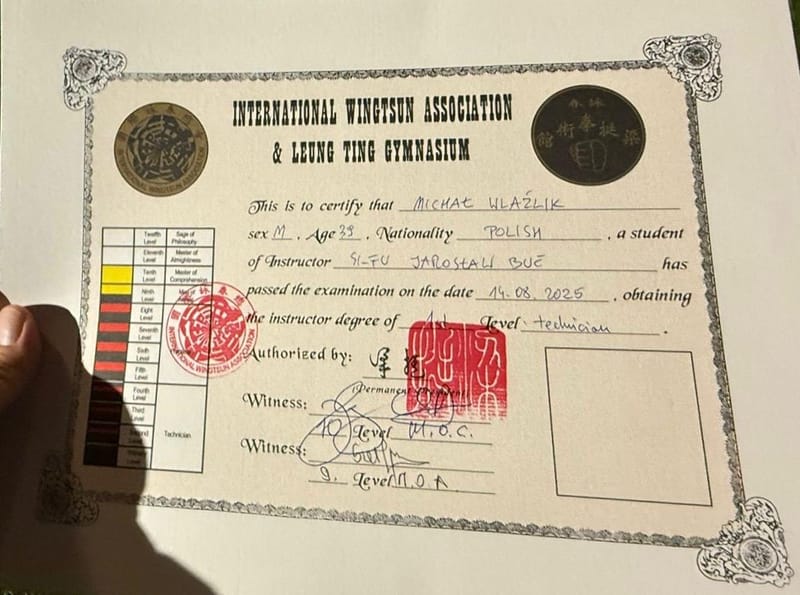 INTERNATIONAL WINGTSUN ASSOCIATION
& LEUNG TING GYMNASIUM
詠春
梁挺拳術館
This is to certify that MICHAŁ WLAŹLIK
sex M , Age 39 , Nationality POLISH , a student
of Instructor SI-FU JAROSŁAW BUĆ has
passed the examination on the date 14.08.2025 , obtaining
the instructor degree of 1st Level technician .
Authorized by:
(Permanent President)
Witness:
10 Level M.O.C.
Witness:
9. Level M.O.A.
Twelfth Level Sage of Philosophy
Eleventh Level Master of Almightiness
Tenth Level Master of Comprehension
Ninth Level
Eight Level
Seventh Level
Sixth Level
Fifth Level
Fourth Level
Third Level
Second Level Technician
Level
INTERNATIONAL WINGTSUN ASSOCIATION
INTERNATIONAL WINGTSUN ASSOCIATION